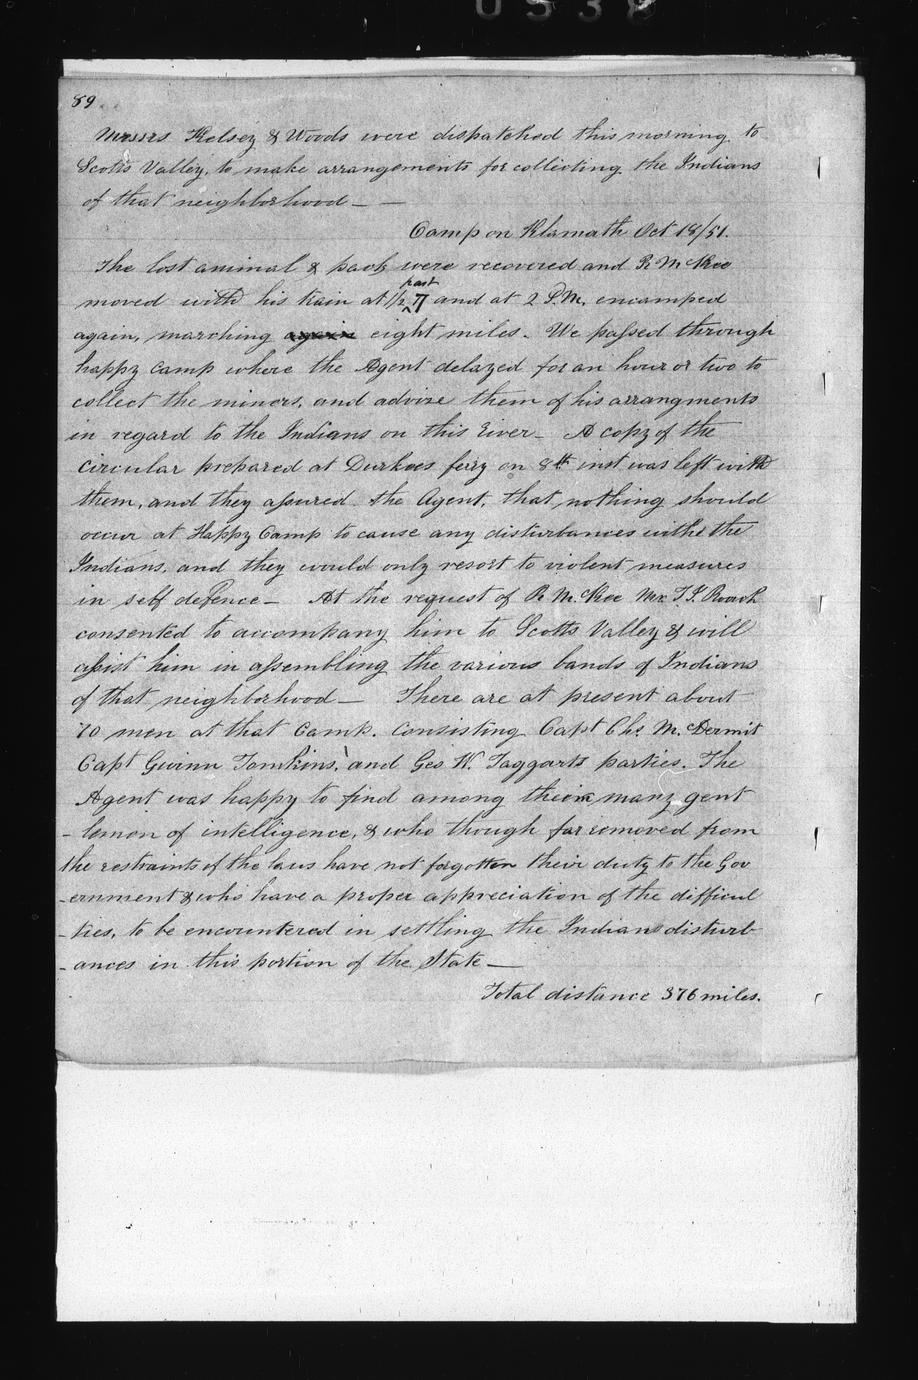 0538
89
Messrs Kelsey & Woods were dispatched this morning to
Scotts Valley, to make arrangements for collecting the Indians
of that neighborhood — —
Camp on Klamath Oct 18/51.
The lost animal & pack were recovered and R McKee
past
moved with his train at 1/2 ^ 7 and at 2 P.M. encamped
again, marching again eight miles. We passed through
happy camp where the Agent delayed for an hour or two to
collect the miners, and advise them of his arrangments
in regard to the Indians on this River — A copy of the
circular prepared at Durkees ferry on 8th inst was left with
them, and they assured the Agent, that nothing should
occur at Happy Camp to cause any disturbances with the
Indians, and they would only resort to violent measures
in self defence — At the request of R McKee Mr. T. J. Roach
consented to accompany him to Scotts Valley & will
assist him in assembling the various bands of Indians
of that neighborhood — There are at present about
70 men at that camp. consisting Capt Chs. McDermit
Capt Gwinn Tomkins, and Geo W. Taggarts parties. The
Agent was happy to find among their many gent
- lemen of intelligence, & who though far removed from
the restraints of the laws have not forgotten their duty to the Gov
- ernment & who have a proper appreciation of the difficul
- ties, to be encountered in settling the Indians disturb
- ances in this portion of the State —
Total distance 376 miles.